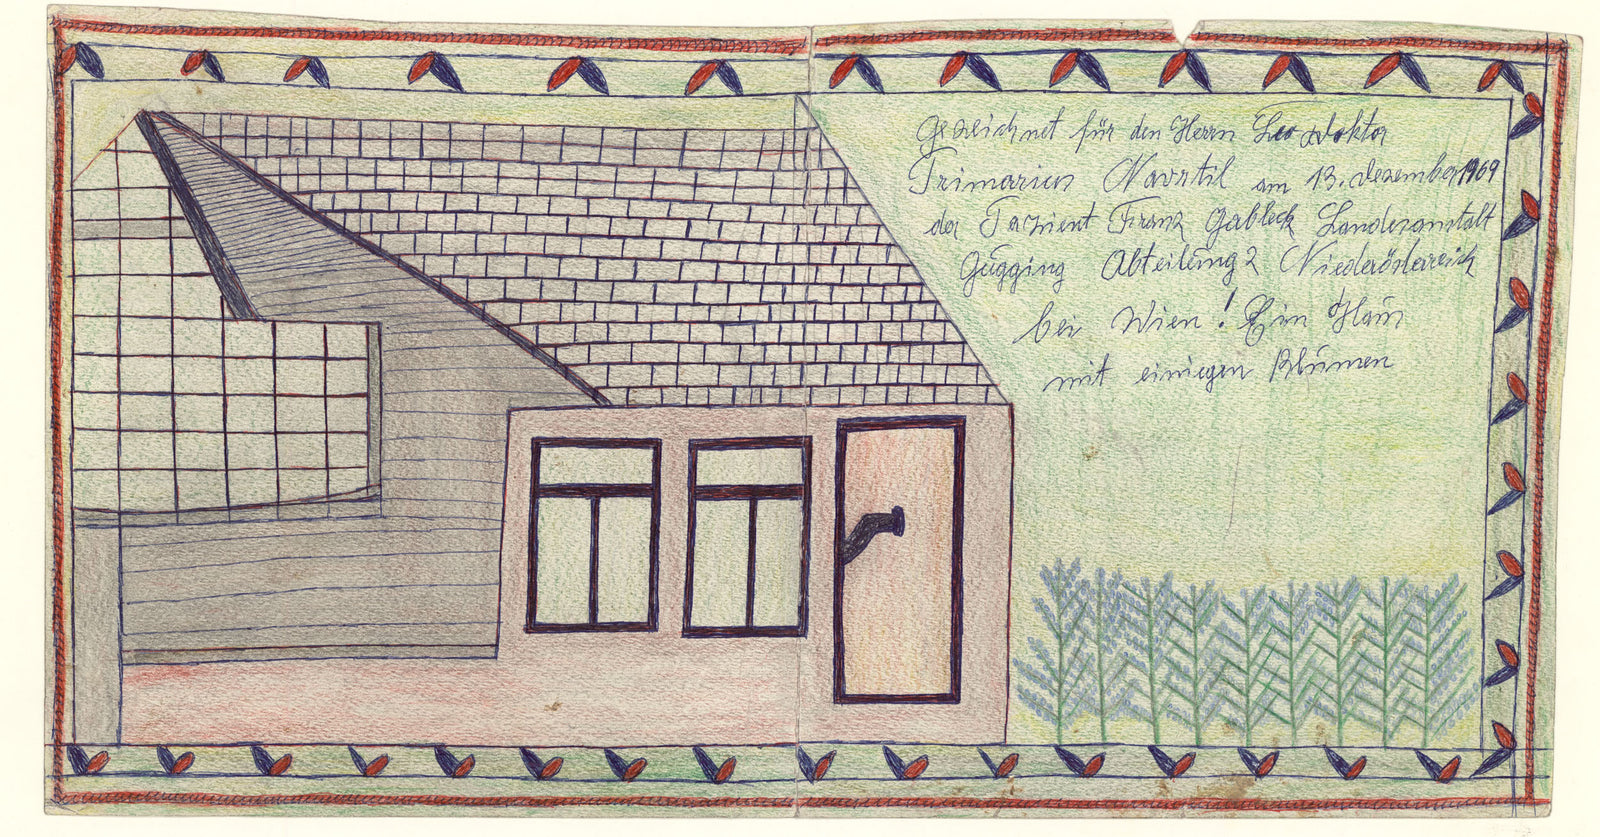 Gezeichnet für den Herrn Leo doktor
Primarius Navratil am 13. dezember 1969
der Pazient Franz Gableck Landesanstalt
Gugging Abteilung 2 Niederösterreich
bei Wien! Ein Haus
mit einiegen Blumen